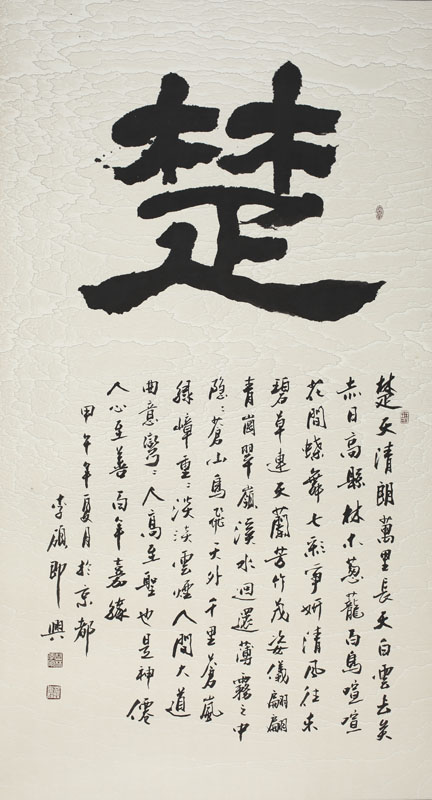 楚
楚天清朗萬里長天白雲去矣
赤日高縣林木蔥蘢百鳥喧喧
花間蝶舞七彩爭妍清風往來
碧草連天蘭芳竹茂姿儀翩翩
青崗翠嶺溪水迴還薄霧之中
隱〻蒼山鳥飛天外千里蒼嵐
綠嶂重〻淡淡雲煙人間大道
曲意彎〻人高至聖也是神僊
人心至善百年嘉緣
甲午年夏月於京都
李 即興